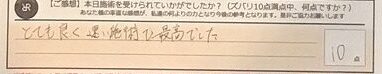 【ご感想】本日施術を受けられていかがでしたか？（ズバリ10点満点中、何点ですか？）
あなた様の率直な感想が、私達の何よりの力となり今後の参考となります。是非ご協力お願いします
とても良く 速い施術で最高でした
10点